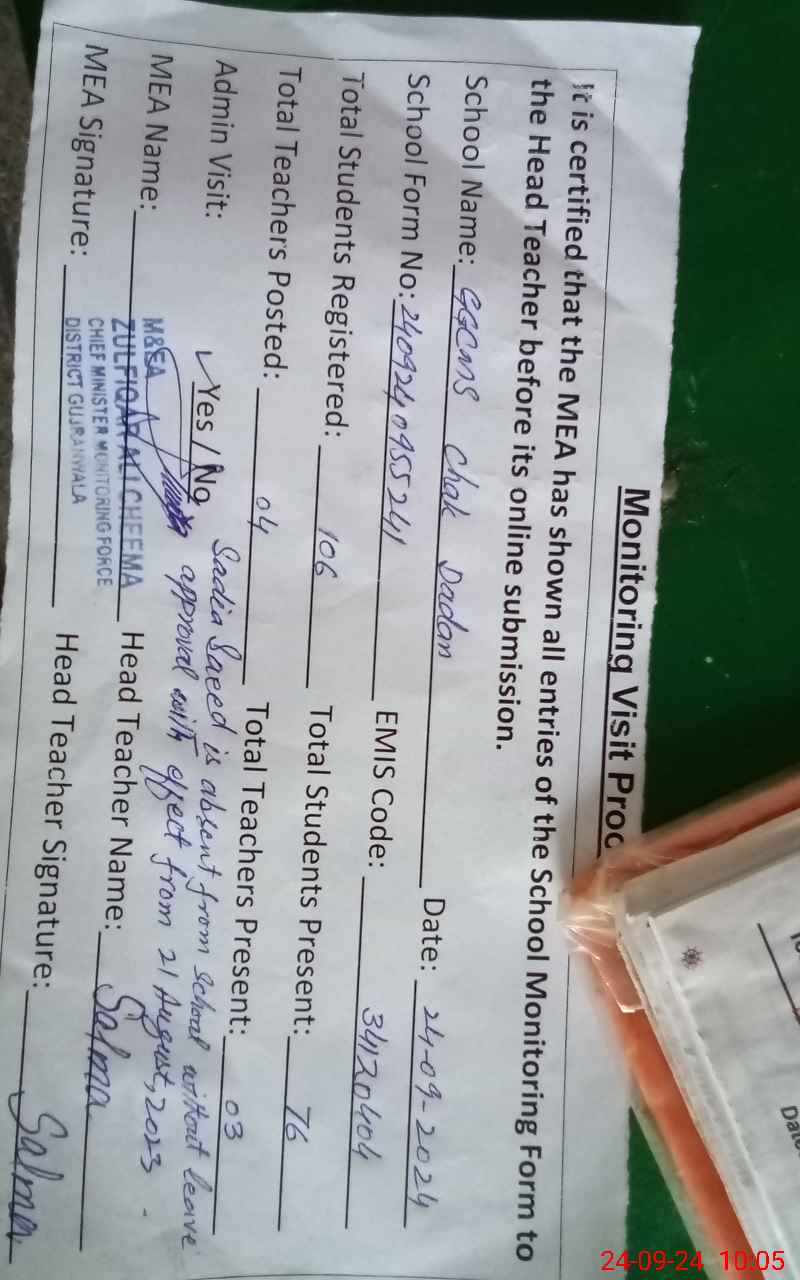 Monitoring Visit Proo
It is certified that the MEA has shown all entries of the School Monitoring Form to
the Head Teacher before its online submission.
School Name: GGCMS Chak Dadan Date: 24-09-2024
School Form No: 240924095524 EMIS Code: 34120404
Total Students Registered: 106 Total Students Present: 76
Total Teachers Posted: 04 Total Teachers Present: 03
Admin Visit: ✓ Yes / No Sadia Saeed is absent from school without leave
approval with effect from 21 August, 2023.
MEA Name: Head Teacher Name: Salma
MEA Signature: Head Teacher Signature: Salma
M&EA
ZULFIQAR ALI CHEEMA
CHIEF MINISTER MONITORING FORCE
DISTRICT GUJRANWALA
Date
24-09-24 10:05